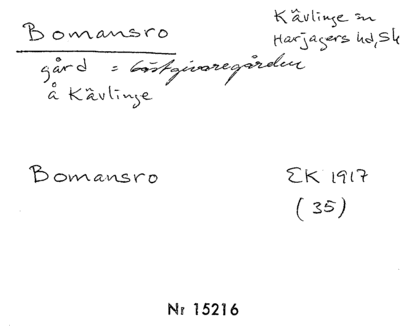 Bomansro
Kävlinge sn
Harjagers hd, Sk
gård = Gästgivaregården
å Kävlinge
Bomansro
EK 1917
(35)
Nr 15216